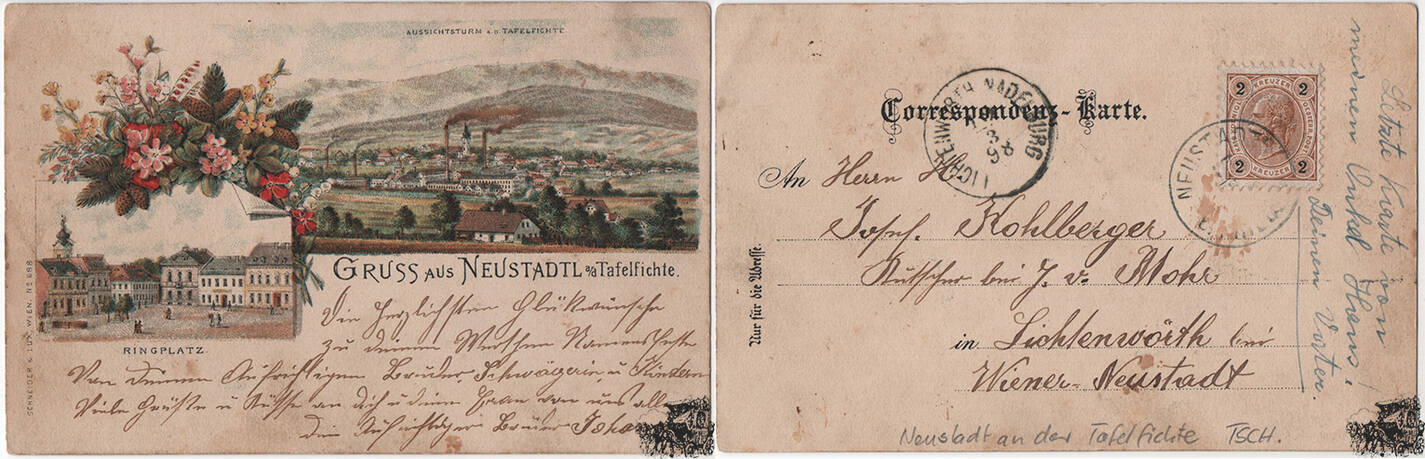 AUSSICHTSTURM A.D. TAFELFICHTE
GRUSS AUS NEUSTADTL a/d Tafelfichte.
RINGPLATZ.
SCHNEIDER & LUX, WIEN. No 688
Die herzlichsten Glükwünsche
zu deinem Werthen Namensfeste
Von deinem Aufrichtigen Bruder, Schwägerin, u Kindern
Viele Grüße u Küsse an dich u deine Frau von uns alle
dein Aufrichtiger Bruder
Correspondenz-Karte.
An Herrn
Josef Kohlberger
Kutscher bei J. v. Mohr
in Lichtenwörth bei
Wiener-Neustadt
Nur für die Adresse.
LICHTENWÖRTH NADELBURG
2 KREUZER 2
2 KREUZER 2
NEUSTADTL
Letzte Karte von
meinem Onkel Hans!
Deinen Vater.
Neustadt an der Tafelfichte TSCH.